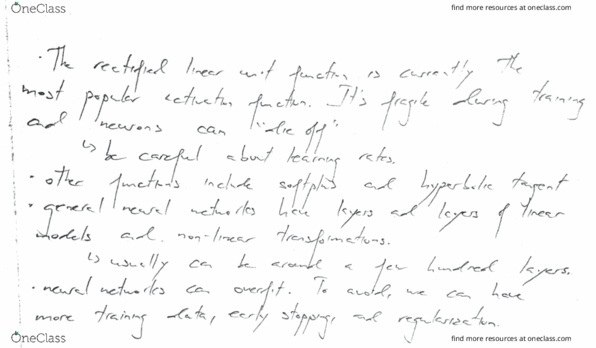 OneClass
find more resources at oneclass.com
· The rectified linear unit function is currently the
most popular activation function. It's fragile during training
and neurons can "die off".
↳ be careful about learning rates.
· other functions include softplus and hyperbolic tangent
· general neural networks have layers and layers of linear
models and non-linear transformations.
↳ usually can be around a few hundred layers.
· neural networks can overfit. To avoid, we can have
more training data, early stopping, and regularization.
OneClass
find more resources at oneclass.com